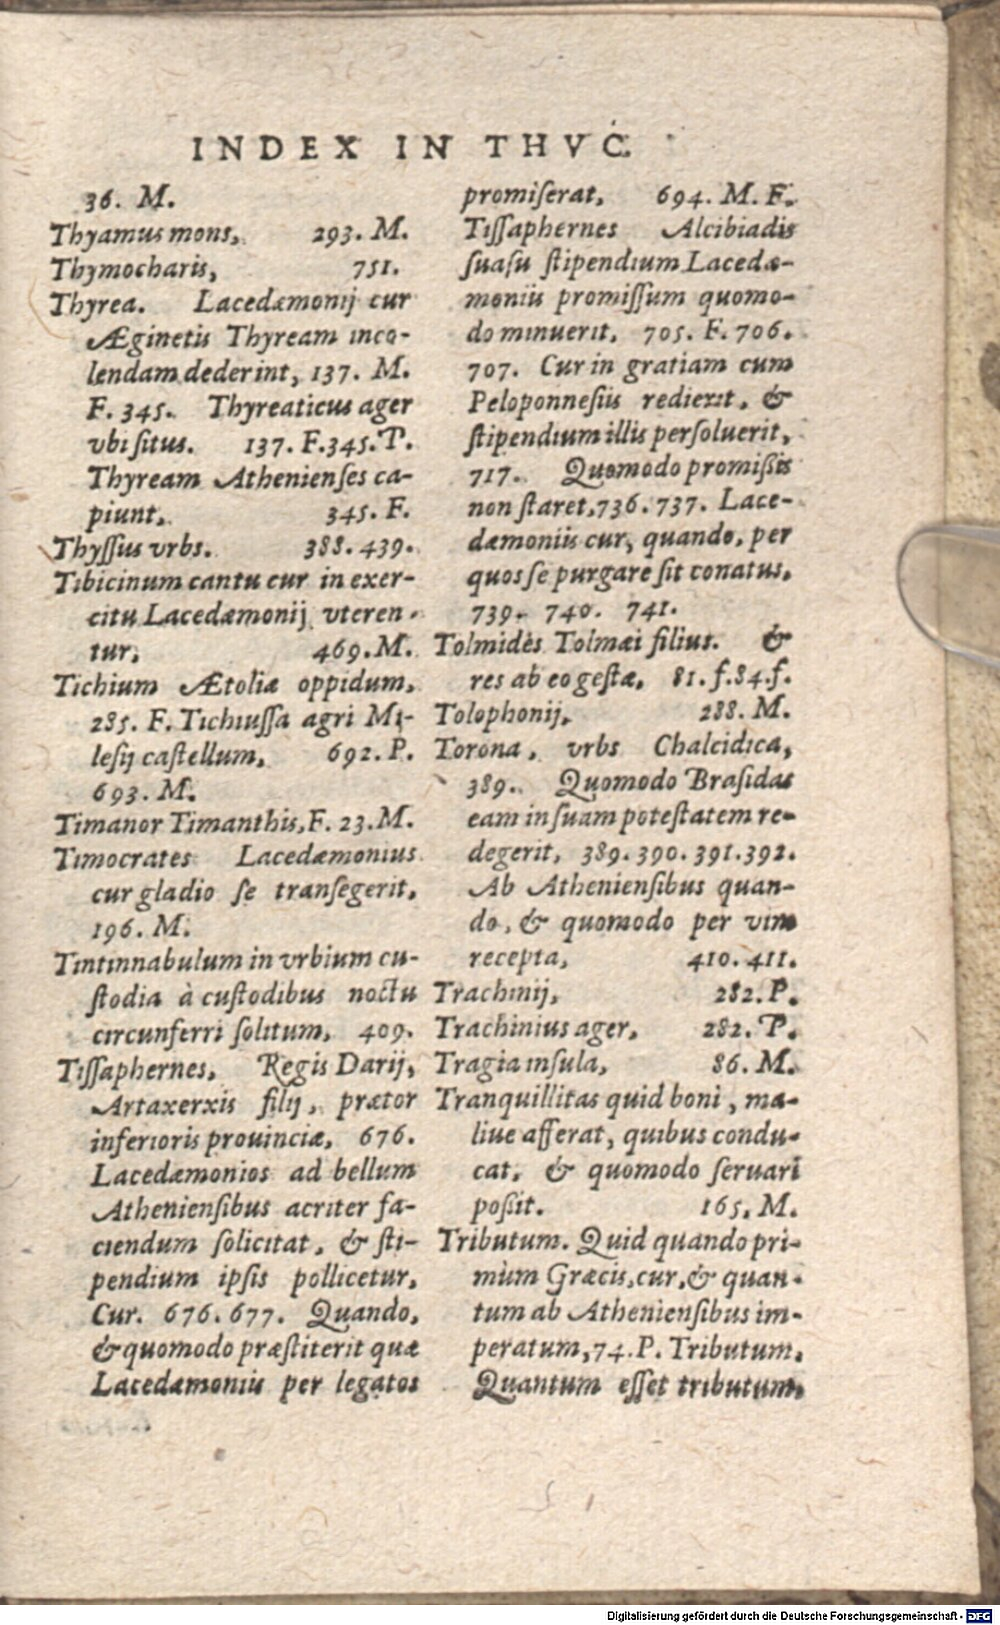 INDEX IN THVC.
36. M.
Thyamus mons, 293. M.
Thymocharis, 751.
Thyrea. Lacedæmonij cur
Æginetis Thyream inco-
lendam dederint, 137. M.
F. 345. Thyreaticus ager
vbi situs. 137. F. 345. P.
Thyream Athenienses ca-
piunt, 345. F.
Thyssus vrbs. 388. 439.
Tibicinum cantu cur in exer-
citu Lacedæmonij vteren-
tur, 469. M.
Tichium Ætoliæ oppidum,
285. F. Tichiussa agri Mi-
lesij castellum, 692. P.
693. M.
Timanor Timanthis, F. 23. M.
Timocrates Lacedæmonius
cur gladio se transegerit,
196. M.
Tintinnabulum in vrbium cu-
stodia à custodibus noctu
circunferri solitum, 409.
Tissaphernes, Regis Darij,
Artaxerxis filij, prætor
inferioris prouinciæ, 676.
Lacedæmonios ad bellum
Atheniensibus acriter fa-
ciendum solicitat, & sti-
pendium ipsis pollicetur,
Cur. 676. 677. Quando,
& quomodo præstiterit quæ
Lacedæmoniis per legatos
promiserat, 694. M. F.
Tissaphernes Alcibiadis
suasu stipendium Lacedæ-
moniis promissum quomo-
do minuerit, 705. F. 706.
707. Cur in gratiam cum
Peloponnesiis redierit, &
stipendium illis persoluerit,
717. Quomodo promissis
non staret, 736. 737. Lace-
dæmoniis cur, quando, per
quos se purgare sit conatus,
739. 740. 741.
Tolmidès Tolmæi filius. &
res ab eo gestæ, 81. f. 84. f.
Tolophonij, 288. M.
Torona, vrbs Chalcidica,
389. Quomodo Brasidas
eam in suam potestatem re-
degerit, 389. 390. 391. 392.
Ab Atheniensibus quan-
do, & quomodo per vim
recepta, 410. 411.
Trachinij, 282. P.
Trachinius ager, 282. P.
Tragia insula, 86. M.
Tranquillitas quid boni, ma-
liue afferat, quibus condu-
cat, & quomodo seruari
possit. 165. M.
Tributum. Quid quando pri-
mùm Græcis, cur, & quan-
tum ab Atheniensibus im-
peratum, 74. P. Tributum.
Quantum esset tributum,
Digitalisierung gefördert durch die Deutsche Forschungsgemeinschaft - DFG